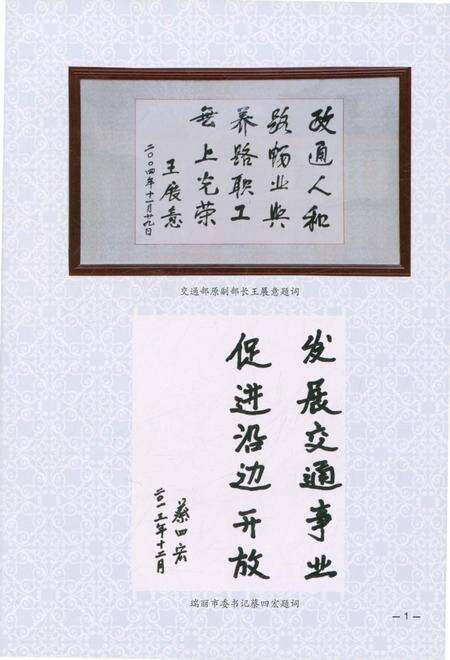 政通人和
路畅业兴
养路职工
無上光荣
王展意
二〇〇四年十一月廿九日
交通部原副部长王展意题词
发展交通事业
促进沿边开放
蔡四宏
二〇一三年十二月
瑞丽市委书记蔡四宏题词
—1—